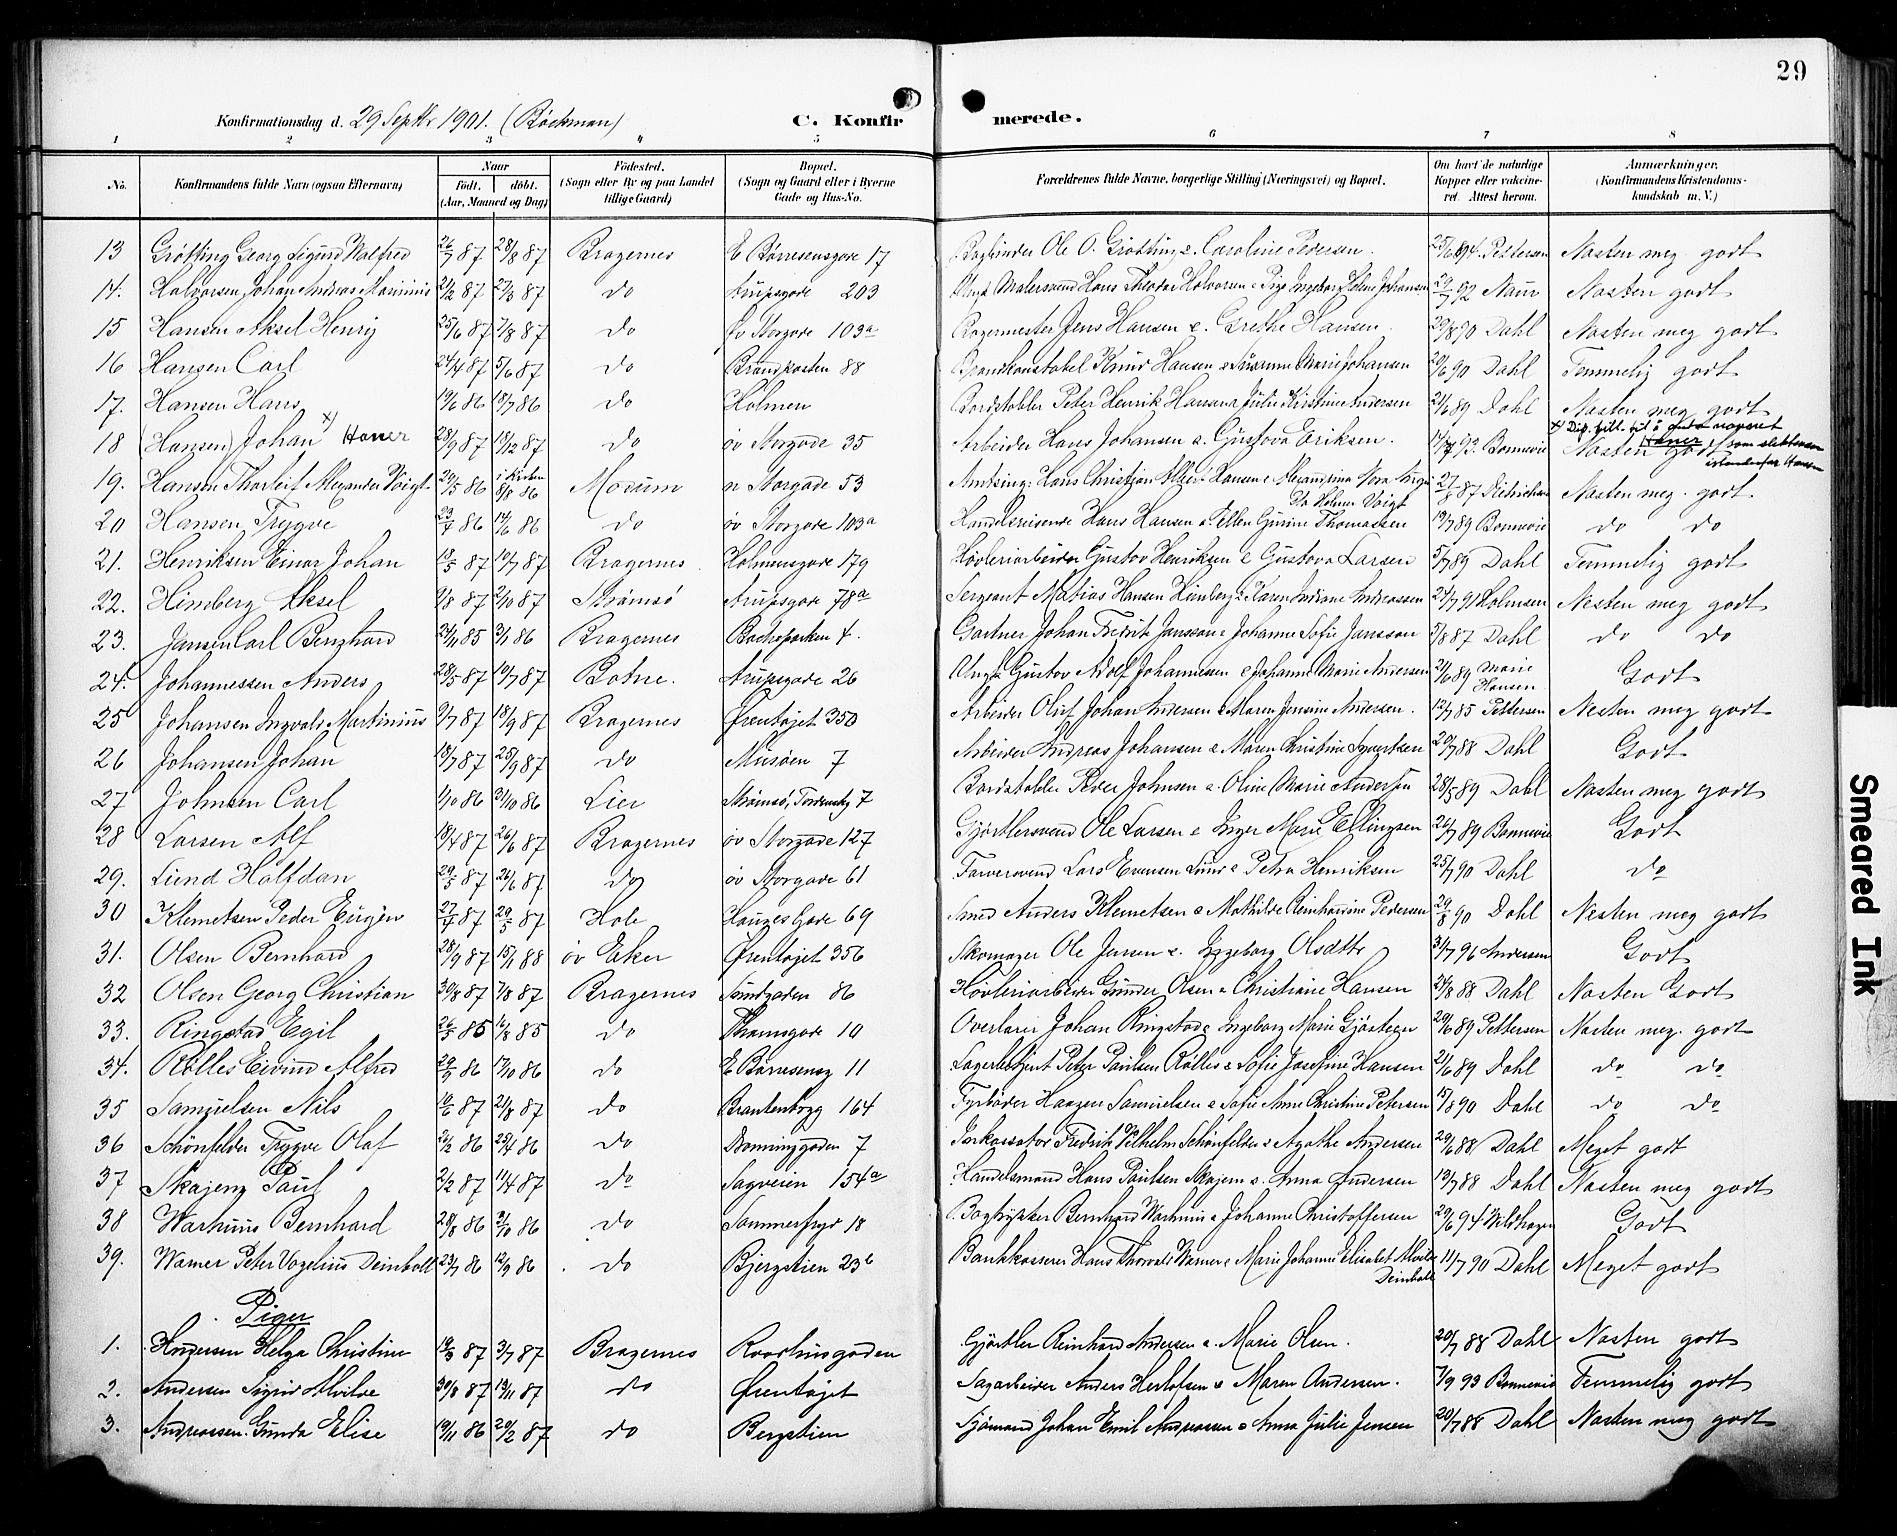 29
Konfirmationsdag d. 29 Septbr 1901. (Böckman) C. Konfirmerede.
1 2 3 4 5 6 7 8
No. Konfirmandens fulde Navn (ogsaa Efternavn) Naar født. døbt. (Aar, Maaned og Dag) Fødested. (Sogn eller By og paa Landet tillige Gaard) Bopæl. (Sogn og Gaard eller i Byerne Gade og Hus-No. Forældrenes fulde Navne, borgerlige Stilling (Næringsvei) og Bopæl. Om havt de naturlige Kopper eller vakcineret. Attest herom. Anmærkninger. (Konfirmandens Kristendomskundskab m. V.)
13 Grötting Georg Sigurd Walfred 26/7 87 28/8 87 Bragernes E Börresensgade 17 Bogbinder Ole O. Grötting & Caroline Pedersen. Pettersen Næsten meg. godt
14. Halvorsen Johan Andreas Marinius 21/2 87 27/3 87 do Arupsgade 203 Malersvend Hans Theodor Halvorsen & Pige Ingeborg Helene Johansen 92 Næsten godt
15 Hansen Aksel Henry 25/6 87 7/8 87 do öv Storgade 103a Bagermester Jens Hansen & Grethe Hansen. 29/8 90 Dahl Næsten meg godt
16 Hansen Carl 24/4 87 5/6 87 do Brandposten 88 Brandkonstabel Knud Hansen & Susanne Marie Johansen 20/6 90 Dahl Temmelig godt
17. Hansen Hans 19/6 86 18/7 86 do Holmen Bordstabler Peter Henrik Hansen & Julie Kristine Andersen 21/6 89 Dahl Næsten meg godt
18 (Hansen) Johan x) Haner 28/9 87 18/12 87 do öv Storgade 35 Arbeider Hans Johansen & Gustava Eriksen. 93. Bonnevie Næsten godt x) Dip. till. til å anta navnet Haner som slektsnavn istedenfor Hansen
19. Hansen Thorleif Alexander Voigt 29/5 86 i Kirken 8/8 86 Modum n Storgade 53 Amtsing: Hans Christian Albert Hansen & Alexandrina Nora Inga Holmer Voigt 87 Dietrichson Næsten meg. godt
20 Hansen Trygve 23/4 86 14/6 86 do öv Storgade 103a Handelsreisende Hans Hansen & Ellen Gurine Thomassen 19/7 89 Bonnevie do do
21. Henriksen Einar Johan 18/5 87 10/7 87 Bragernes Holmensgade 179 Høvleriarbeider Gustav Henriksen & Gustava Larsen 5/7 89 Dahl Temmelig godt
22. Himberg Aksel 9/8 87 2/10 87 Strømsø Arupsgade 78a Sergeant Matias Hansen Himberg & Karen Indiane Andreassen 91 Holmsen Nesten meg godt
23. Jansen Carl Bernhard 24/11 85 3/1 86 Bragernes Bacheparken 4. Gartner Johan Fredrik Jansson & Johanne Sofie Jansson 5/8 87 Dahl do do
24. Johannessen Anders 28/5 87 10/7 87 Botne. Arupsgade 26 Ungk Gustav Adolf Johannessen & Johanne Marie Andersen 21/6 89 Marie Hansen Godt
25 Johansen Ingvald Martinius 9/7 87 18/9 87 Bragernes Ørentøjet 350 Arbeider Oluf Johan Andersen & Maren Jensine Andersen. 12/7 85 Pettersen Nesten meg godt
26 Johansen Johan 18/7 87 25/9 87 do Musøen 7 Arbeider Andreas Johansen & Maren Christine Syvertsen 20/7 88 Dahl Godt
27 Johnsen Carl 1/10 86 31/10 86 Lier Strømsø, Tordenskg 7 Bordstabler Peder Johnsen & Oline Marie Andersen 28/5 89 Dahl Næsten meg godt
28 Larsen Alf 18/4 87 26/6 87 Bragernes öv Storgade 127 Gjørtlersvend Ole Larsen & Inger Marie Ellingsen 26/7 89 Bonnevie Godt
29. Lund Halfdan 29/5 87 26/6 87 do öv Storgade 61 Farversvend Lars Evensen Lund & Petra Henriksen 25/7 90 Dahl do
30 Klemetsen Peder Eugen 27/4 87 29/5 87 Hole Hauges Gade 69 Smed Anders Klemetsen & Mathilde Reinhardine Pedersen 29/8 90 Dahl Nesten meg godt
31. Olsen Bernhard 28/9 87 15/1 88 öv Eker Ørentøjet 356 Skomager Ole Jensen & Ingeborg Olsdttr 31/7 96 Andersen Godt
32 Olsen Georg Christian 30/8 87 7/8 87 Bragernes Sundgaden 86 Høvleriarbeider Gunder Olsen & Christiane Hansen 24/8 88 Dahl Næsten Godt
33. Ringstad Egil 26/5 85 16/8 85 do Thamsgade 10 Overlærer Johan Ringstad & Ingeborg Marie Gjøsteen 29/6 89 Pettersen Næsten meg. godt
34. Rølles Eivind Alfred 29/9 86 17/10 86 do E Börresensg 11 Lagerbetjent Peter Paulsen Rølles & Sofie Josefine Hansen 21/6 89 Dahl do do
35 Samuelsen Nils 19/6 87 21/8 87 do Brantenborg 164 Fyrbøder Haagen Samuelsen & Sofie Anne Christine Petersen 15/8 90 Dahl do do
36 Schönfelder Trygve Olaf 26/2 86 23/4 86 do Dronninggaden 7 Inkassator Fredrik Vilhelm Schönfelder & Agathe Andersen 29/6 88 Dahl Meget godt
37 Skajem Paul 21/2 87 11/4 87 do Sagveien 154a Handelsmand Hans Paulsen Skajem & Anna Andersen 13/7 88 Dahl Næsten meg godt
38 Warhuus Bernhard 28/8 86 3/10 86 do Sommerfryd 18 Bogtrykker Bernhard Warhuus & Johanne Christoffersen 29/6 94 Wildhagen Godt
39. Warner Peter Vogelius Deinboll 23/7 86 12/9 86 do Bjergstien 23b Bankkasserer Hans Thorvald Warner & Marie Johanne Elisabet Alvilde Deinboll 11/7 90 Dahl Meget godt
Piger
1. Andersen Helga Christine 18/3 87 3/7 87 Bragernes Raadhusgaden Gjørtler Reinhard Andersen & Marie Olsen. 20/7 88 Dahl Næsten godt
2. Andersen Sigrid Alvilde 30/8 87 13/11 87 do Ørentøjet Sagarbeider Anders Herlofsen & Maren Andersen. 7/9 93 Bonnevie Temmelig godt
3. Andreassen Gunda Elise 19/11 86 20/2 87 do Bergstien Sjømand Johan Emil Andreassen & Anna Julie Jensen 20/7 88 Dahl Næsten meg godt
Smeared Ink